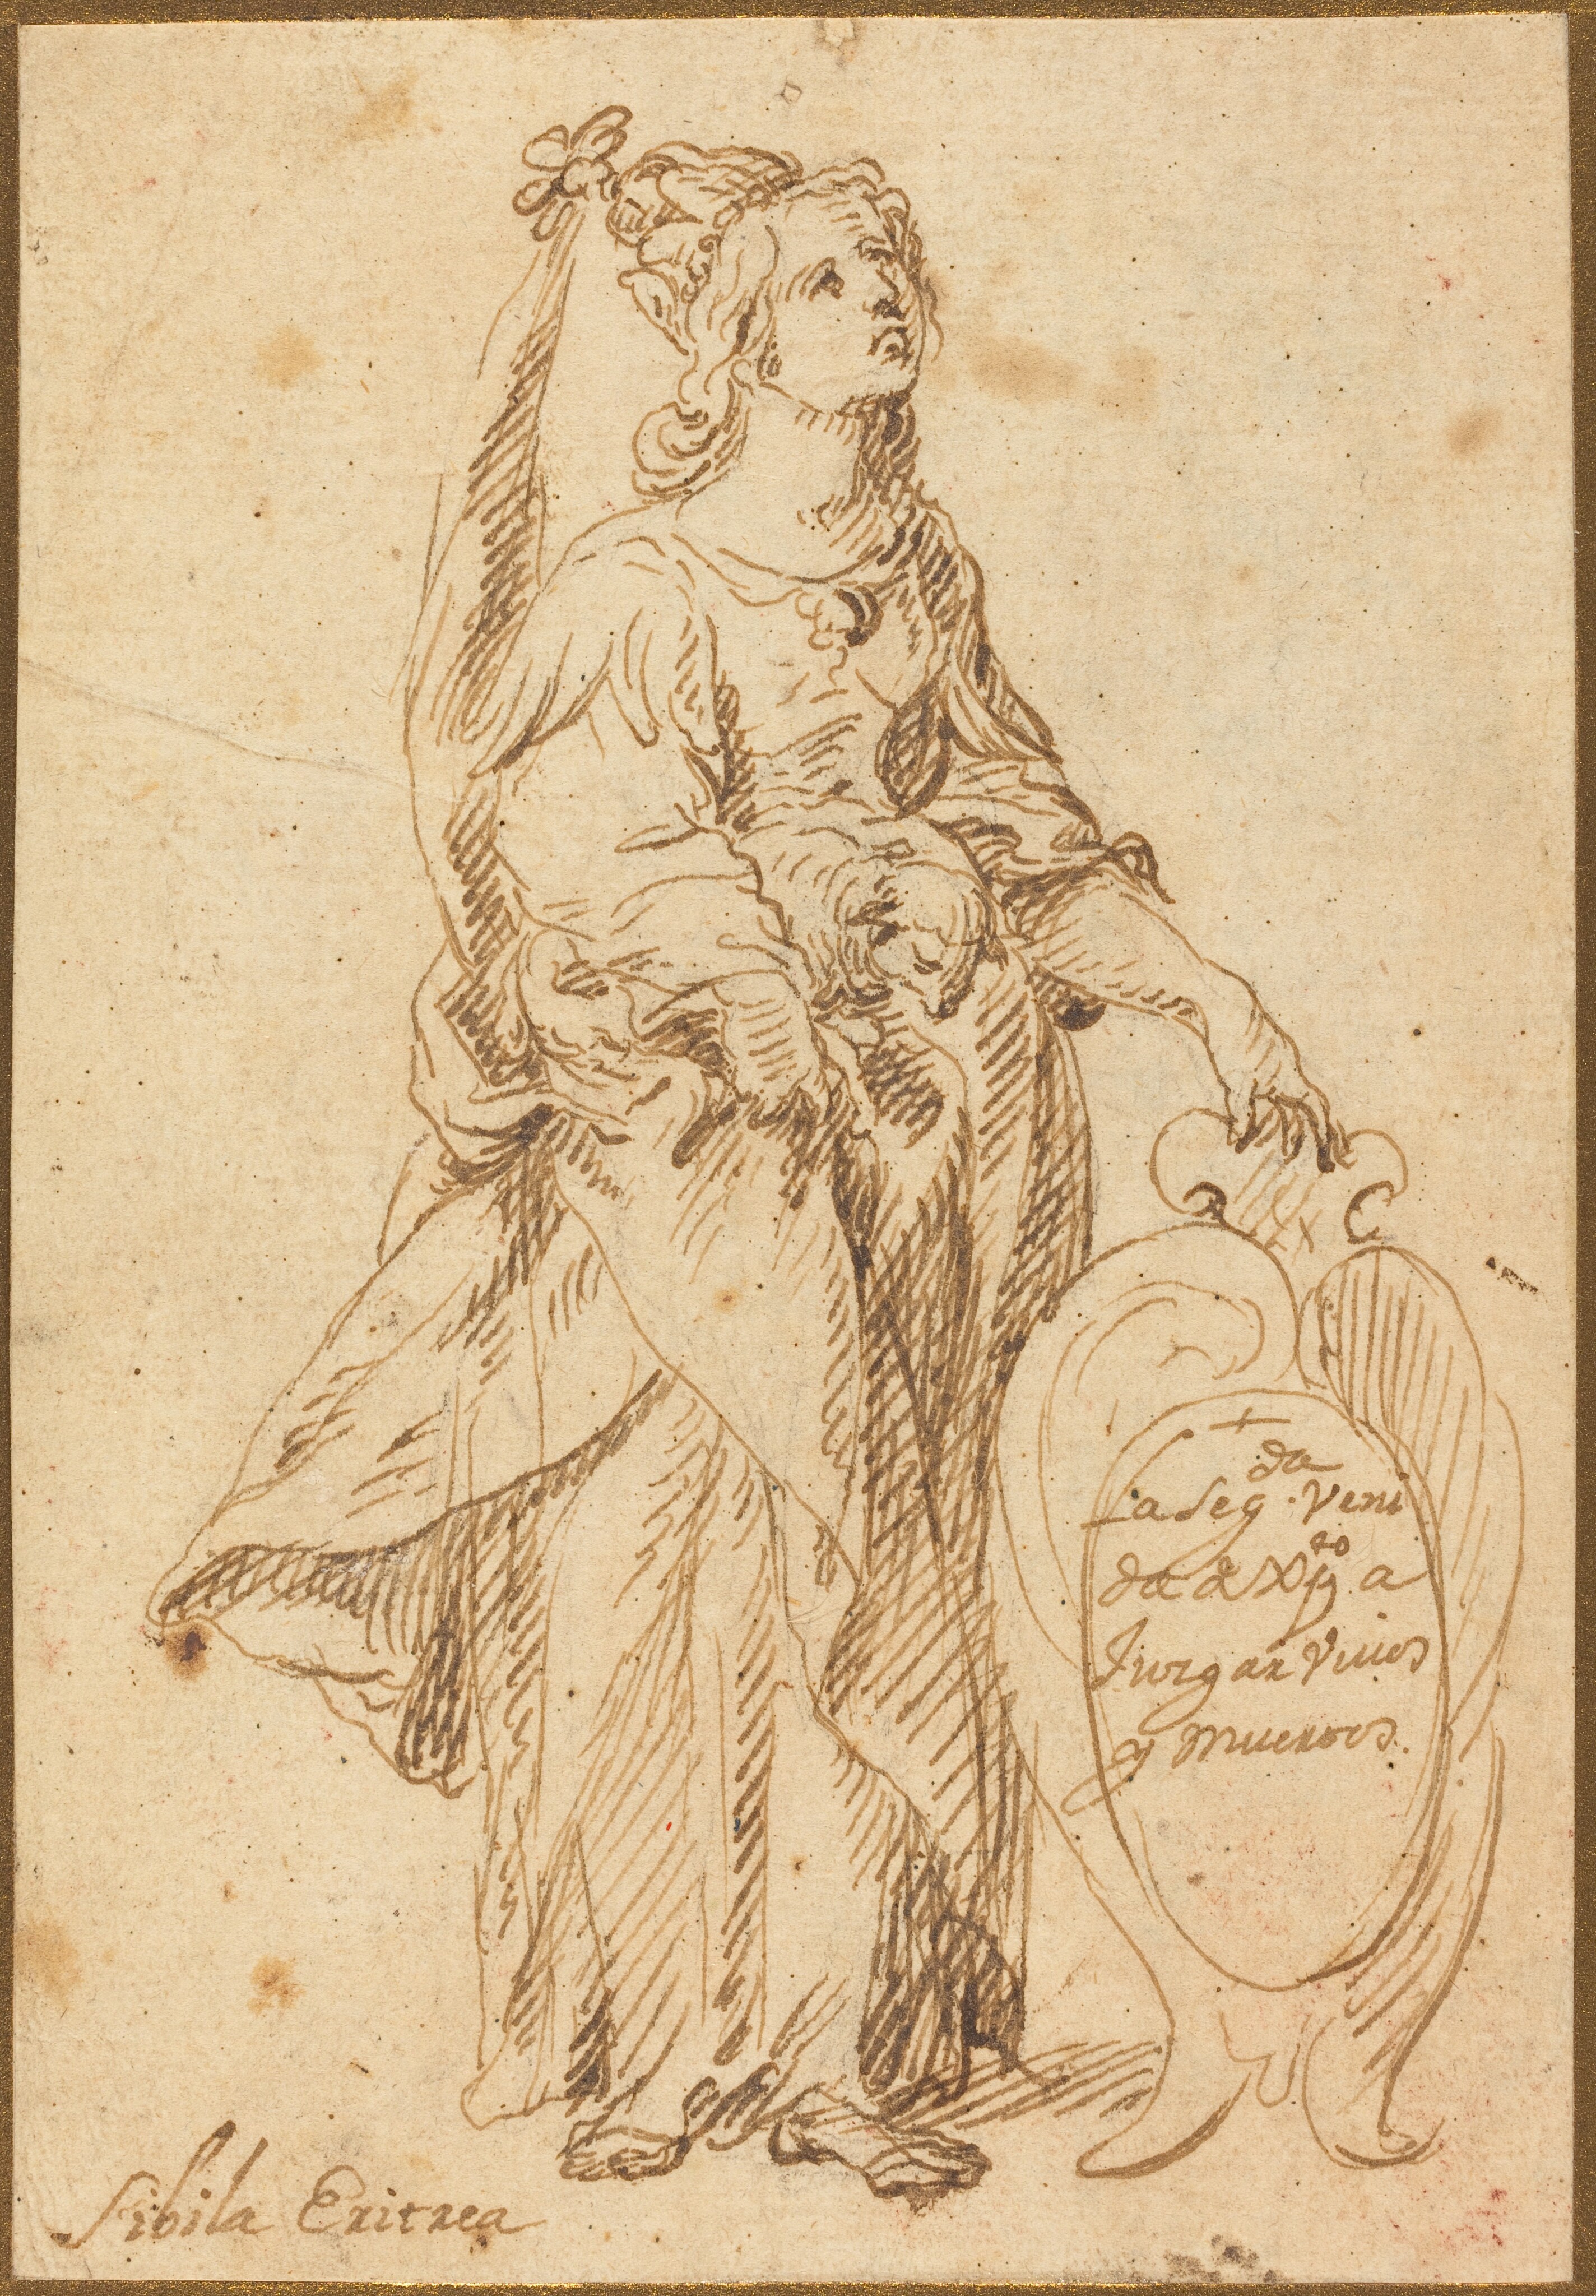 +
La Seg.da Veni
da d Xpto a
Jusgar Viuos
y Muertos.
Sibila Eritrea